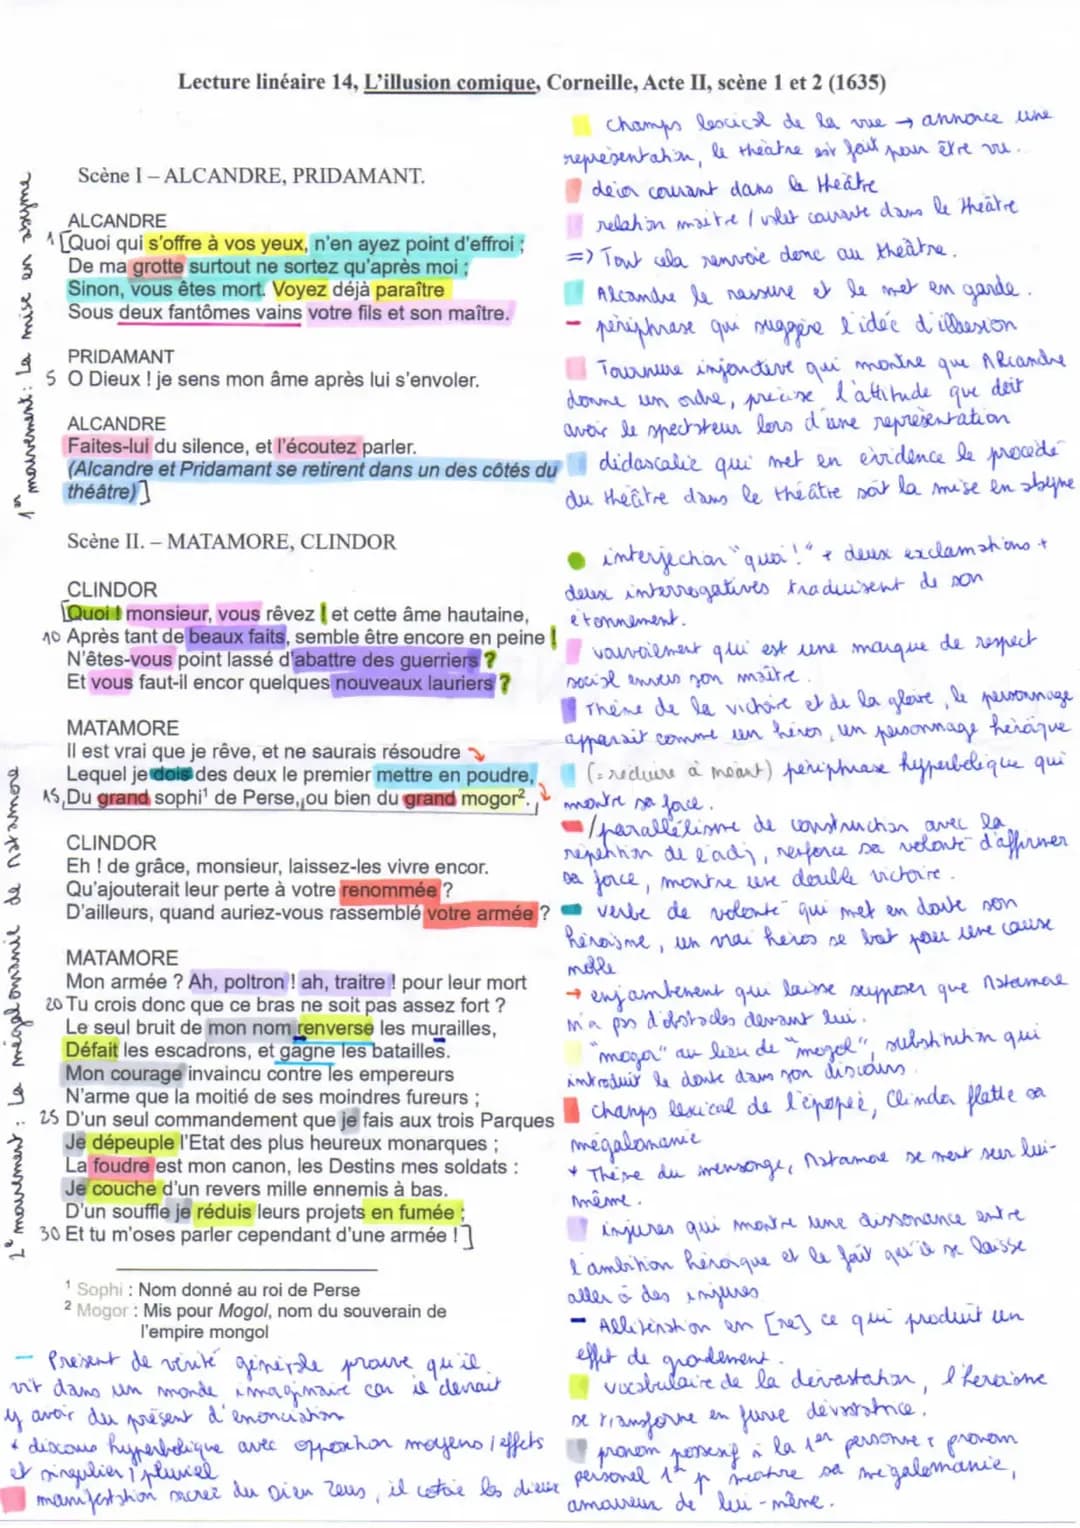 Lecture linéaire 14, L'illusion comique, Corneille, Acte II, scène 1 et 2 (1635)
Scène I – ALCANDRE, PRIDAMANT.
1er mouvement : La mise en abyme
ALCANDRE
1 [Quoi qui s'offre à vos yeux, n'en ayez point d'effroi ;
De ma grotte surtout ne sortez qu'après moi ;
Sinon, vous êtes mort. Voyez déjà paraître
Sous deux fantômes vains votre fils et son maître.
PRIDAMANT
5 O Dieux ! je sens mon âme après lui s'envoler.
ALCANDRE
Faites-lui du silence, et l'écoutez parler.
(Alcandre et Pridamant se retirent dans un des côtés du
théâtre)]
Scène II. – MATAMORE, CLINDOR
CLINDOR
[Quoi ! monsieur, vous rêvez ! et cette âme hautaine,
10 Après tant de beaux faits, semble être encore en peine !
N'êtes-vous point lassé d'abattre des guerriers ?
Et vous faut-il encor quelques nouveaux lauriers ?
2e mouvement : La mégalomanie de Matamore
MATAMORE
Il est vrai que je rêve, et ne saurais résoudre
Lequel je dois des deux le premier mettre en poudre,
15 Du grand sophi¹ de Perse, ou bien du grand mogor².
CLINDOR
Eh ! de grâce, monsieur, laissez-les vivre encor.
Qu'ajouterait leur perte à votre renommée ?
D'ailleurs, quand auriez-vous rassemblé votre armée ?
MATAMORE
Mon armée ? Ah, poltron ! ah, traitre ! pour leur mort
20 Tu crois donc que ce bras ne soit pas assez fort ?
Le seul bruit de mon nom renverse les murailles,
Défait les escadrons, et gagne les batailles.
Mon courage invaincu contre les empereurs
N'arme que la moitié de ses moindres fureurs ;
25 D'un seul commandement que je fais aux trois Parques
Je dépeuple l'Etat des plus heureux monarques ;
La foudre est mon canon, les Destins mes soldats :
Je couche d'un revers mille ennemis à bas.
D'un souffle je réduis leurs projets en fumée ;
30 Et tu m'oses parler cependant d'une armée ! ]
¹ Sophi : Nom donné au roi de Perse
² Mogor : Mis pour Mogol, nom du souverain de
l'empire mongol
- Présent de vérité générale prouve qu'il
vit dans un monde imaginaire car il devrait
y avoir du présent d'énonciation
+ discours hyperbolique avec opposition moyens / effets
et singulier / pluriel
manifestation sacrée du Dieu Zeus, il cotoie les dieux
champs lexical de la vue → annonce une
représentation, le théâtre est fait pour être vu.
décor courant dans le théâtre
relation maître / valet courante dans le théâtre
=> Tout cela renvoie donc au théâtre.
Alcandre le rassure et le met en garde.
- périphrase qui suggère l'idée d'illusion
Tournure injonctive qui montre que Alcandre
donne un ordre, précise l'attitude que doit
avoir le spectateur lors d'une représentation
didascalie qui met en évidence le procédé
du théâtre dans le théâtre soit la mise en abyme
interjection "quoi !" + deux exclamations +
deux interrogatives traduisent de son
étonnement.
vouvoiement qui est une marque de respect
social envers son maître.
Thème de la victoire et de la gloire, le personnage
apparait comme un héros, un personnage héroïque
(= réduire à néant) périphrase hyperbolique qui
montre sa force.
/ parallélisme de construction avec la
répétition de l'adj, renforce sa volonté d'affirmer
sa force, montre une double victoire.
verbe de volonté qui met en doute son
héroïsme, un vrai héros se bat pour une cause
noble
→ enjambement qui laisse supposer que Matamore
n'a pas d'obstacles devant lui.
"mogor" au lieu de "mogol", substitution qui
introduit le doute dans son discours.
champs lexical de l'épopée, Clindor flatte sa
mégalomanie
+ Thème du mensonge, Matamore se ment sur lui-
même.
injures qui montre une dissonance entre
l'ambition héroïque et le fait qu'il se laisse
aller à des injures
- Allitération en [re] ce qui produit un
effet de grondement.
vocabulaire de la dévastation, l'héroïsme
se transforme en furie dévastatrice.
pronom possessif à la 1ère personne + pronom
personnel 1ère p montre sa mégalomanie,
amoureux de lui-même.